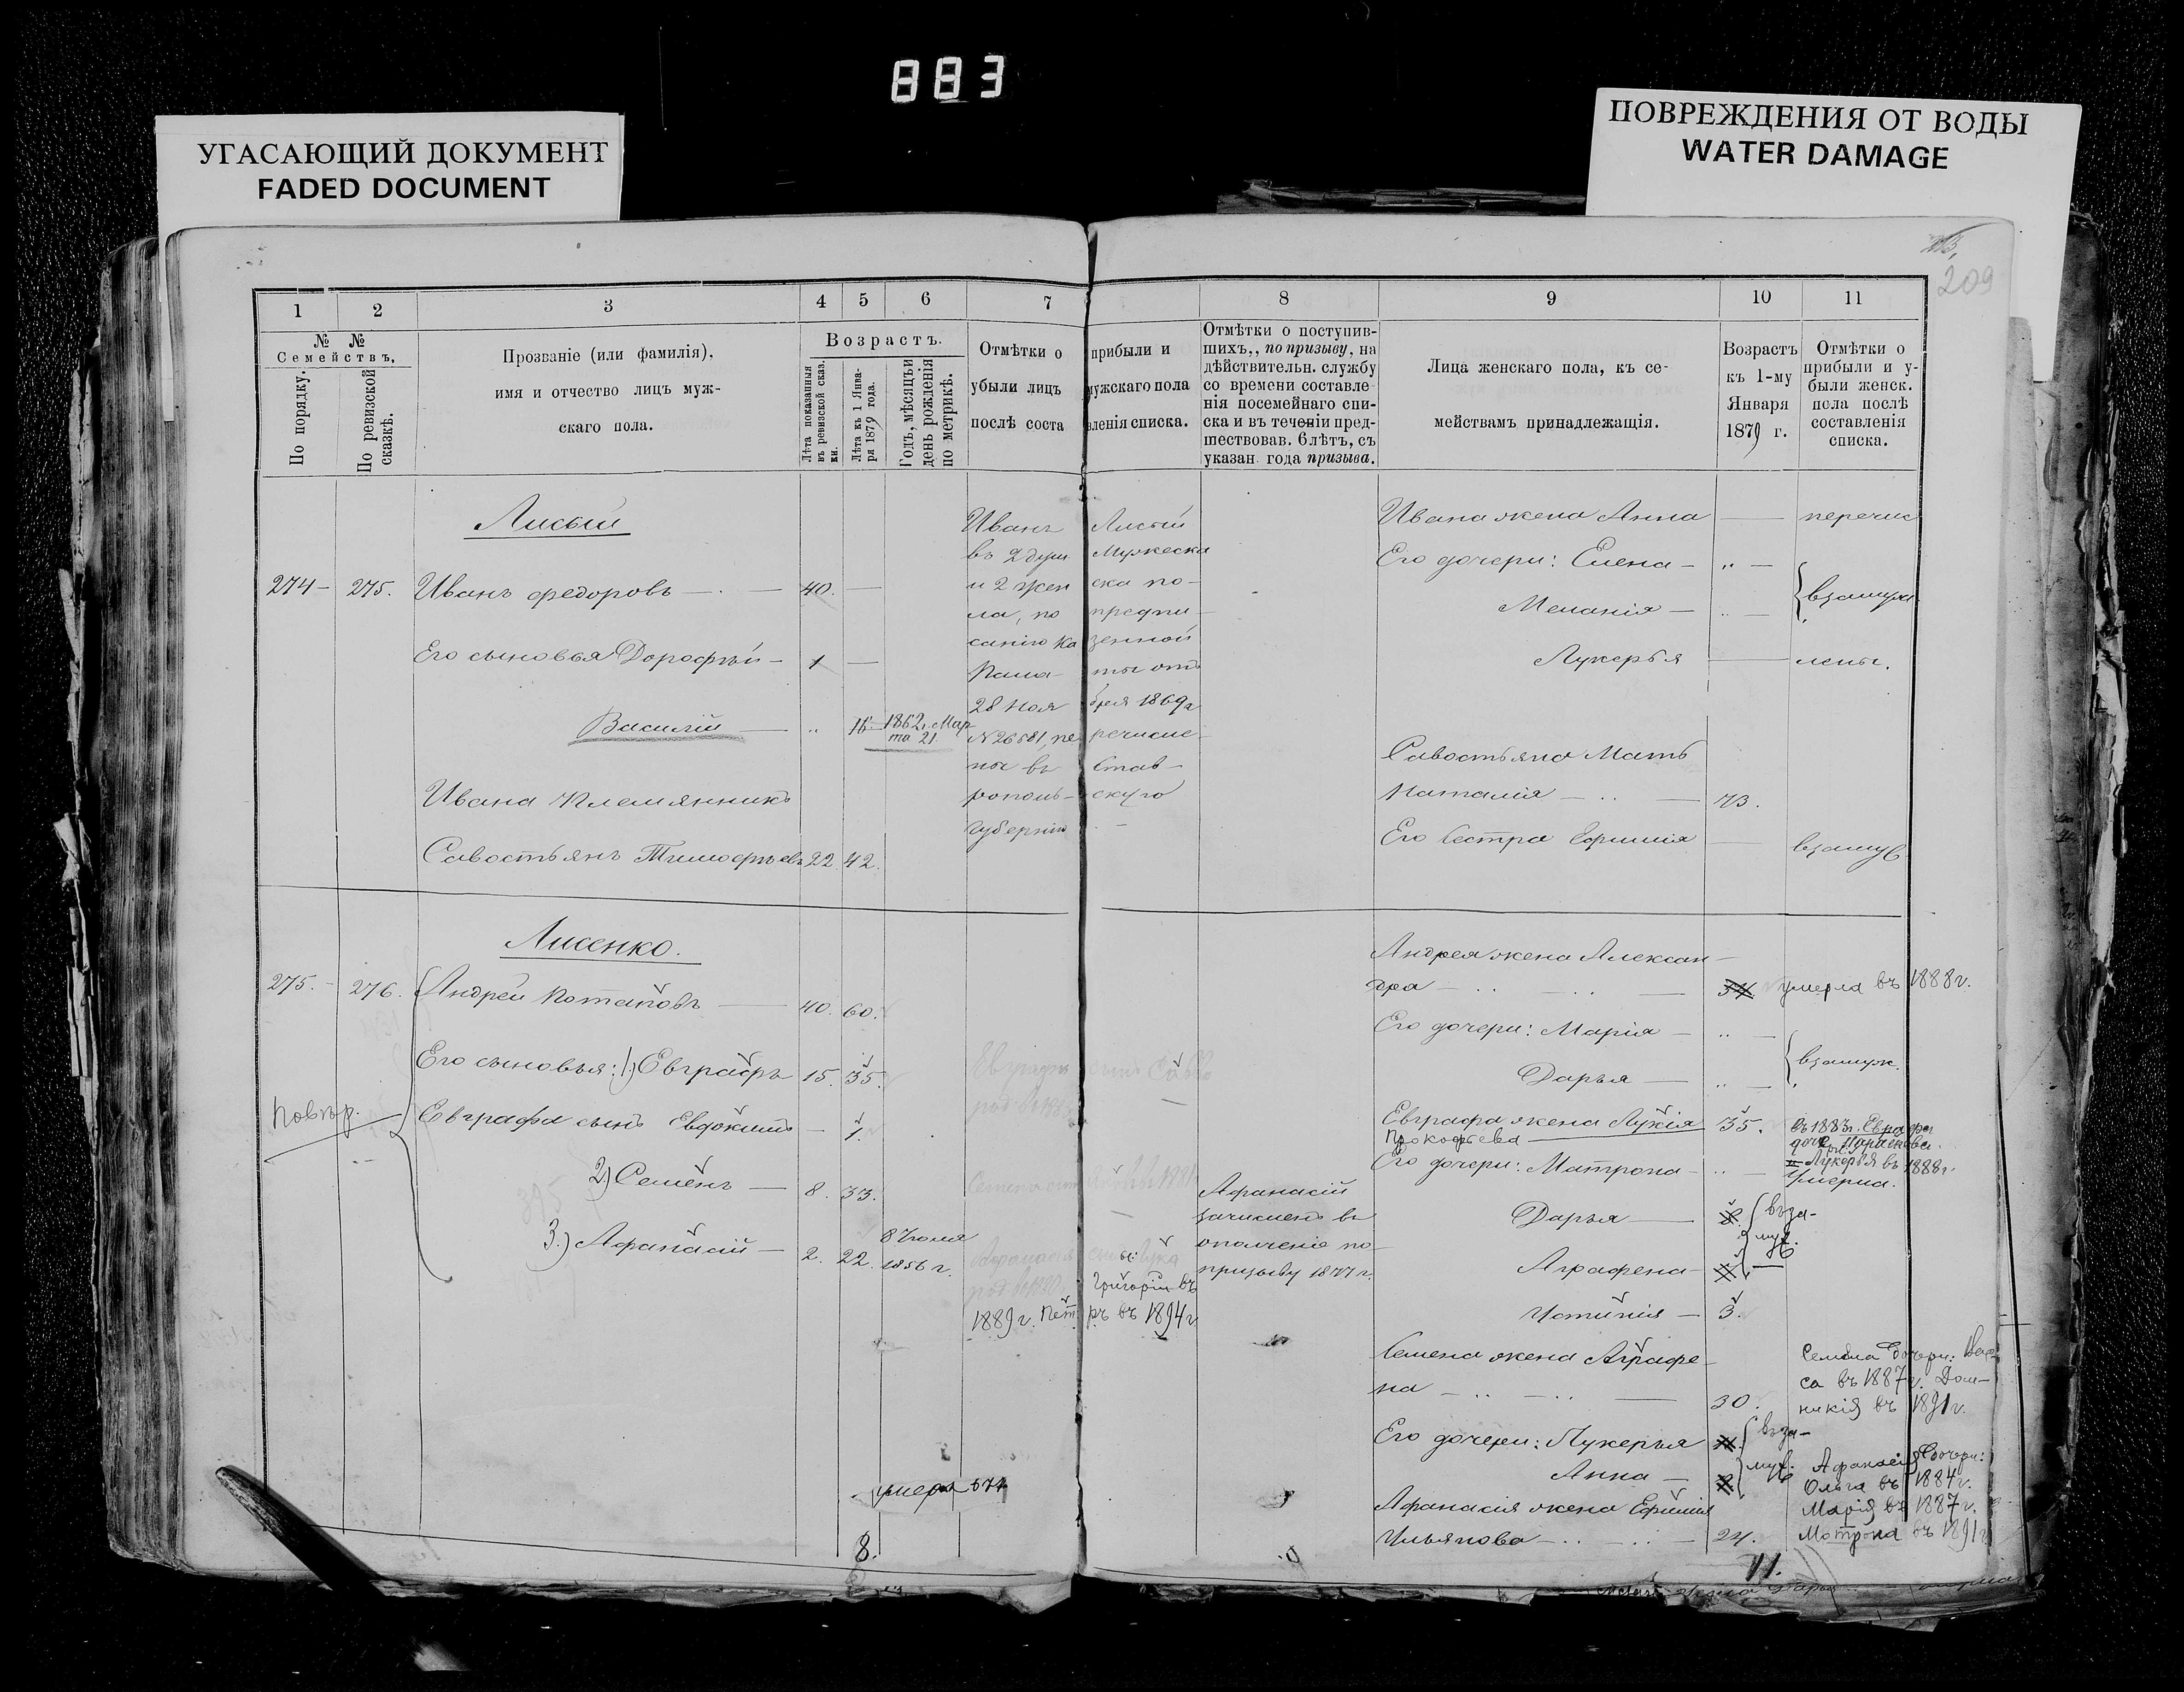 883
УГАСАЮЩИЙ ДОКУМЕНТ
FADED DOCUMENT
ПОВРЕЖДЕНИЯ ОТ ВОДЫ
WATER DAMAGE
209
1 2 3 4 5 6 7 8 9 10 11
№ №
Семействъ.
По порядку.
По ревизской
сказкѣ.
Прозваніе (или фамилія),
имя и отчество лицъ муж-
скаго пола.
Возрастъ.
Лѣта показанныя
въ ревизской сказ.
ки.
Лѣта къ 1 Янва-
ря 1879 года.
Годъ, мѣсяцъ и
день рожденія
по метрикѣ.
Отмѣтки о прибыли и
убыли лицъ мужскаго пола
послѣ составленія списка.
Отмѣтки о поступив-
шихъ,, по призыву, на
дѣйствительн. службу
со времени составле-
нія посемейнаго спи-
ска и въ теченіи пред-
шествовав. 6 лѣтъ, съ
указан. года призыва.
Лица женскаго пола, къ се-
мействамъ принадлежащія.
Возрастъ
къ 1-му
Января
1879 г.
Отмѣтки о
прибыли и у-
были женск.
пола послѣ
составленія
списка.
Лисый
274 - 275. Иванъ Федоровъ — 40. —
Его сыновья Дорофѣй - 1 —
Василій — " 16 1862 г. Мар-
та 21
Ивана Племянникъ
Савостьянъ Тимофѣевъ 22 42.
Иванъ Лисый
въ 2 душ Мужеска
и 2 жен ска по-
ла, по предпи-
санію Ка зенной
Пала- ты отъ
28 Ноя бря 1869 г
№ 26581, пе речисле-
ны въ Став-
рополь- скую
Губернію
Ивана жена Анна — перечис
Его дочери: Елена - " —
Меланія - " — взамуж.
Лукерья — лены.
Савостьяна Мать
Наталія — " — 73.
Его Сестра Ефимія — взамуж
Лисенко.
275. - 276. Андрей Потаповъ — 40. 60.
Его сыновья: 1) Евграфъ 15. 35.
Евграфа сынъ Евдокимъ — 1.
2) Семенъ — 8. 33.
3.) Афанасій — 2. 22. 8 Іюля
1856 г.
Григорій въ
1889 г. Петръ въ 1894 г
Афанасій
зачисленъ въ
ополченіе по
призыву 1877 г.
Андрея жена Алексан-
дра — 54 умерла въ 1888 г.
Его дочери: Марія — " —
Дарья — " — взамуж.
Евграфа жена Лукія 35.
Прокофьева
Лукерья въ 1888 г.
умерла.
Его дочери: Матрона - " —
Дарья — 8. въ за-
муж.
Аграфена -
Устинія — 3.
Семена жена Аграфе-
на — 30.
Семена дочери: Вас
са въ 1887 г. Дом-
никія въ 1891 г.
Его дочери: Лукерья въ за-
Анна — муж.
Афанасія дочери:
Ольга въ 1884 г.
Марія въ 1887 г.
Матрона въ 1891 г
Афанасія жена Ефимія
Ульянова — 24.
8.
11.